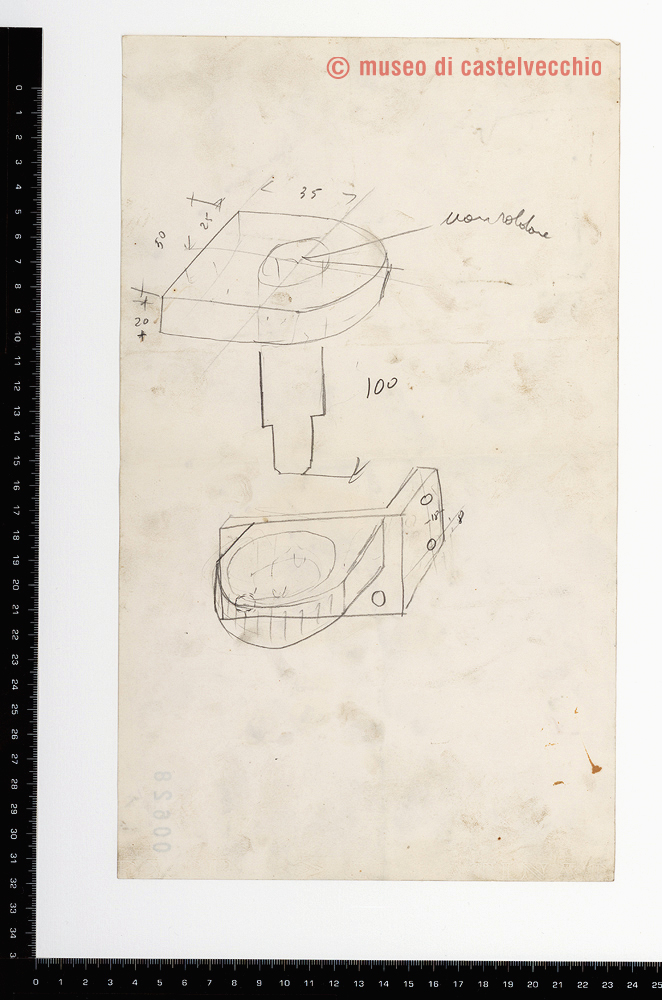 © museo di castelvecchio
35
25
50
non saldare
20
100
18
8
00628
0
1
2
3
4
5
6
7
8
9
10
11
12
13
14
15
16
17
18
19
20
21
22
23
24
25
26
27
28
29
30
31
32
33
34
3
0 1 2 3 4 5 6 7 8 9 10 11 12 13 14 15 16 17 18 19 20 21 22 23 24 25